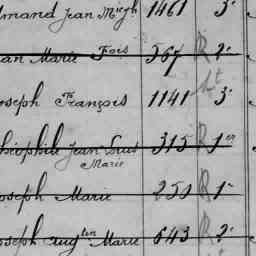 dmand Jean M 1461 3e
an Marie Fois 367 R 2e
oseph François 1141 3e
héophile Jean Louis 315 R 1er
Marie
oseph Marie 250 R 1e
oseph Augtin Marie 643 R 2e